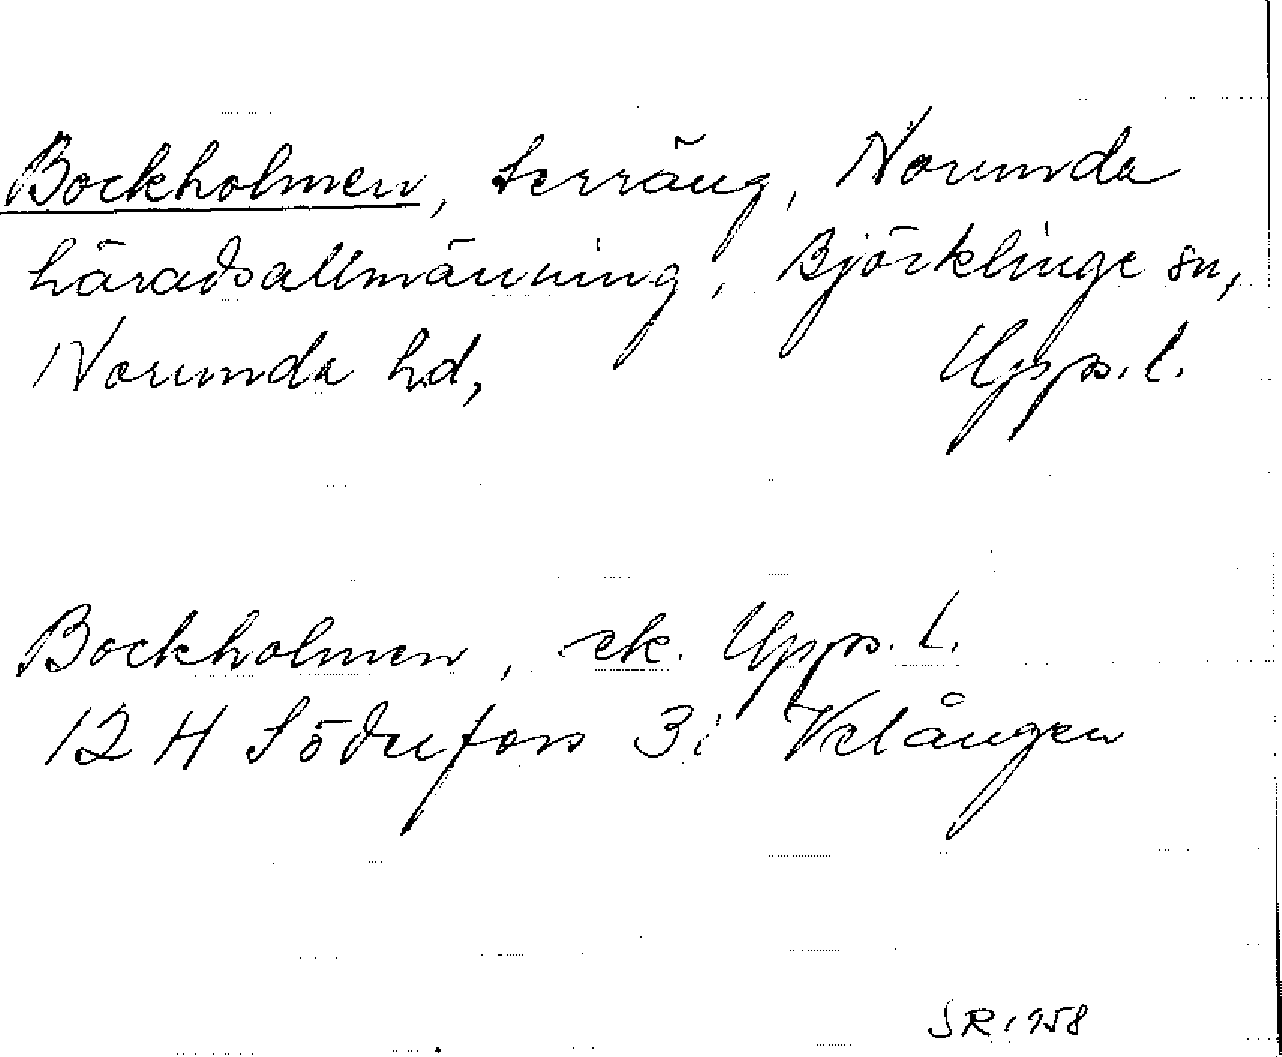 Bockholmen, terräng, Norunda
häradsallmänning, Björklinge sn,
Norunda hd, Upps. l.
Bockholmen, ek. Upps. l.
12 H Söderfors 3i Velången
SR, 958